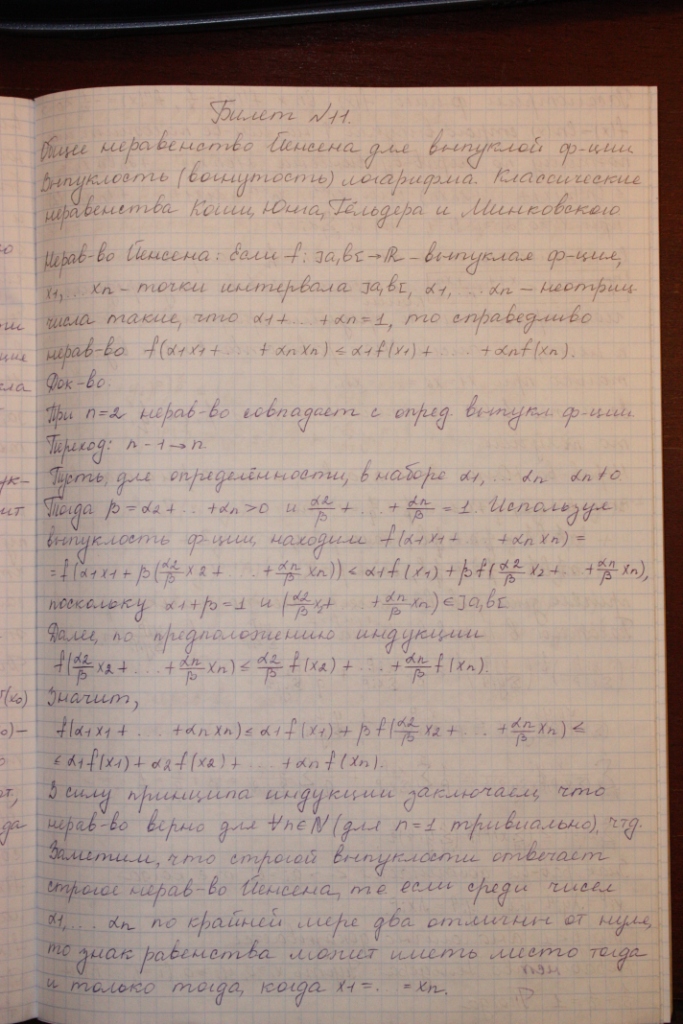 Билет №11.
Общее неравенство Йенсена для выпуклой ф-ции
Выпуклость (вогнутость) логарифма. Классические
неравенства Коши, Юнга, Гёльдера и Минковского
Нерав-во Йенсена: Если f: ]a,b[→ℝ – выпуклая ф-ция,
x1,... xn – точки интервала ]a,b[, α1, ... αn – неотриц.
числа такие, что α1+ ... +αn=1, то справедливо
нерав-во f(α1x1+ ... +αnxn) ≤ α1f(x1)+ ... +αnf(xn).
Док-во.
При n=2 нерав-во совпадает с опред. выпукл. ф-ции
Переход: n-1→n.
Пусть, для определённости, в наборе α1, ... αn αn≠0
Тогда β=α2+ ... +αn>0 и α2/β + ... + αn/β = 1. Используя
выпуклость ф-ции, находим f(α1x1+ ... +αnxn)=
=f(α1x1+β(α2/β x2+ ... +αn/β xn)) ≤ α1f(x1)+βf(α2/β x2+ ... +αn/β xn),
поскольку α1+β=1 и (α2/β x2+ ... +αn/β xn)∈]a,b[
Далее, по предположению индукции
f(α2/β x2+ ... +αn/β xn) ≤ α2/β f(x2)+ ... +αn/β f(xn).
Значит,
f(α1x1+ ... +αnxn) ≤ α1f(x1)+βf(α2/β x2+ ... +αn/β xn) ≤
≤ α1f(x1)+α2f(x2)+ ... +αnf(xn).
В силу принципа индукции заключаем, что
нерав-во верно для ∀n∈N (для n=1 тривиально), чтд.
Заметим, что строгой выпуклости отвечает
строгое нерав-во Йенсена, то если среди чисел
α1,... αn по крайней мере два отличны от нуля,
то знак равенства может иметь место тогда
и только тогда, когда x1=. . =xn.